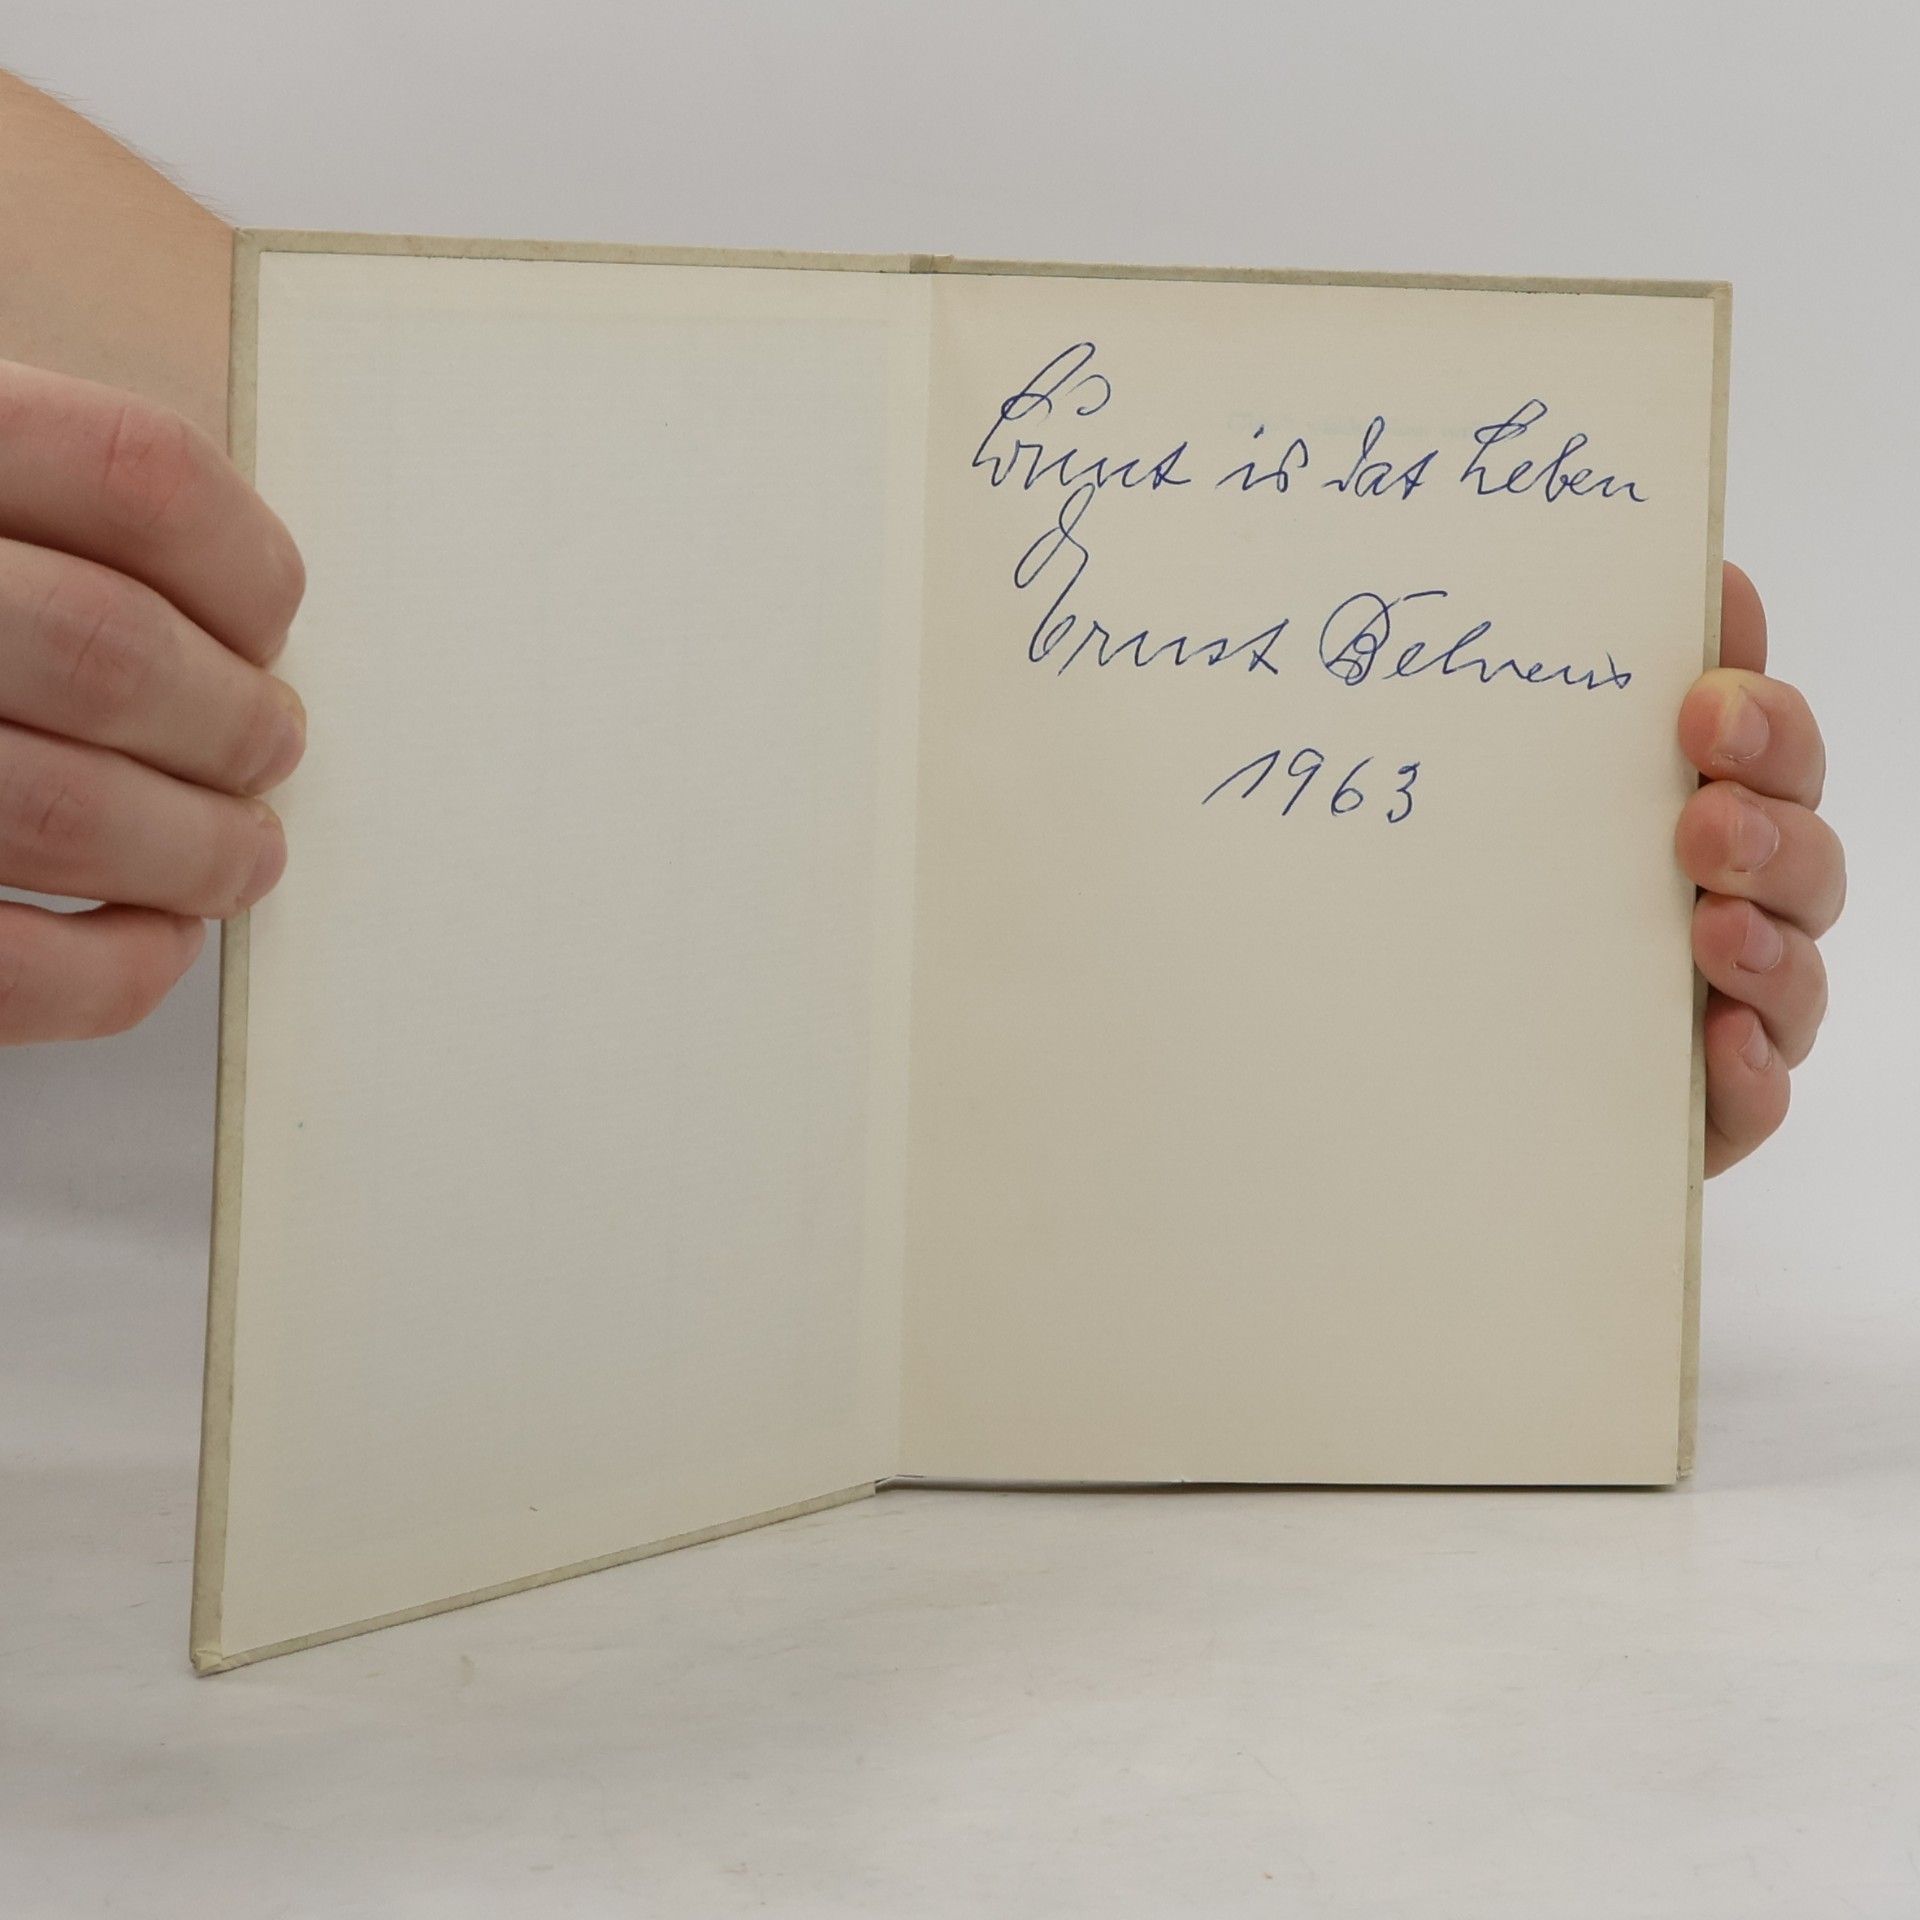 Bunt is dat Leben
Ernst Behrens
1963